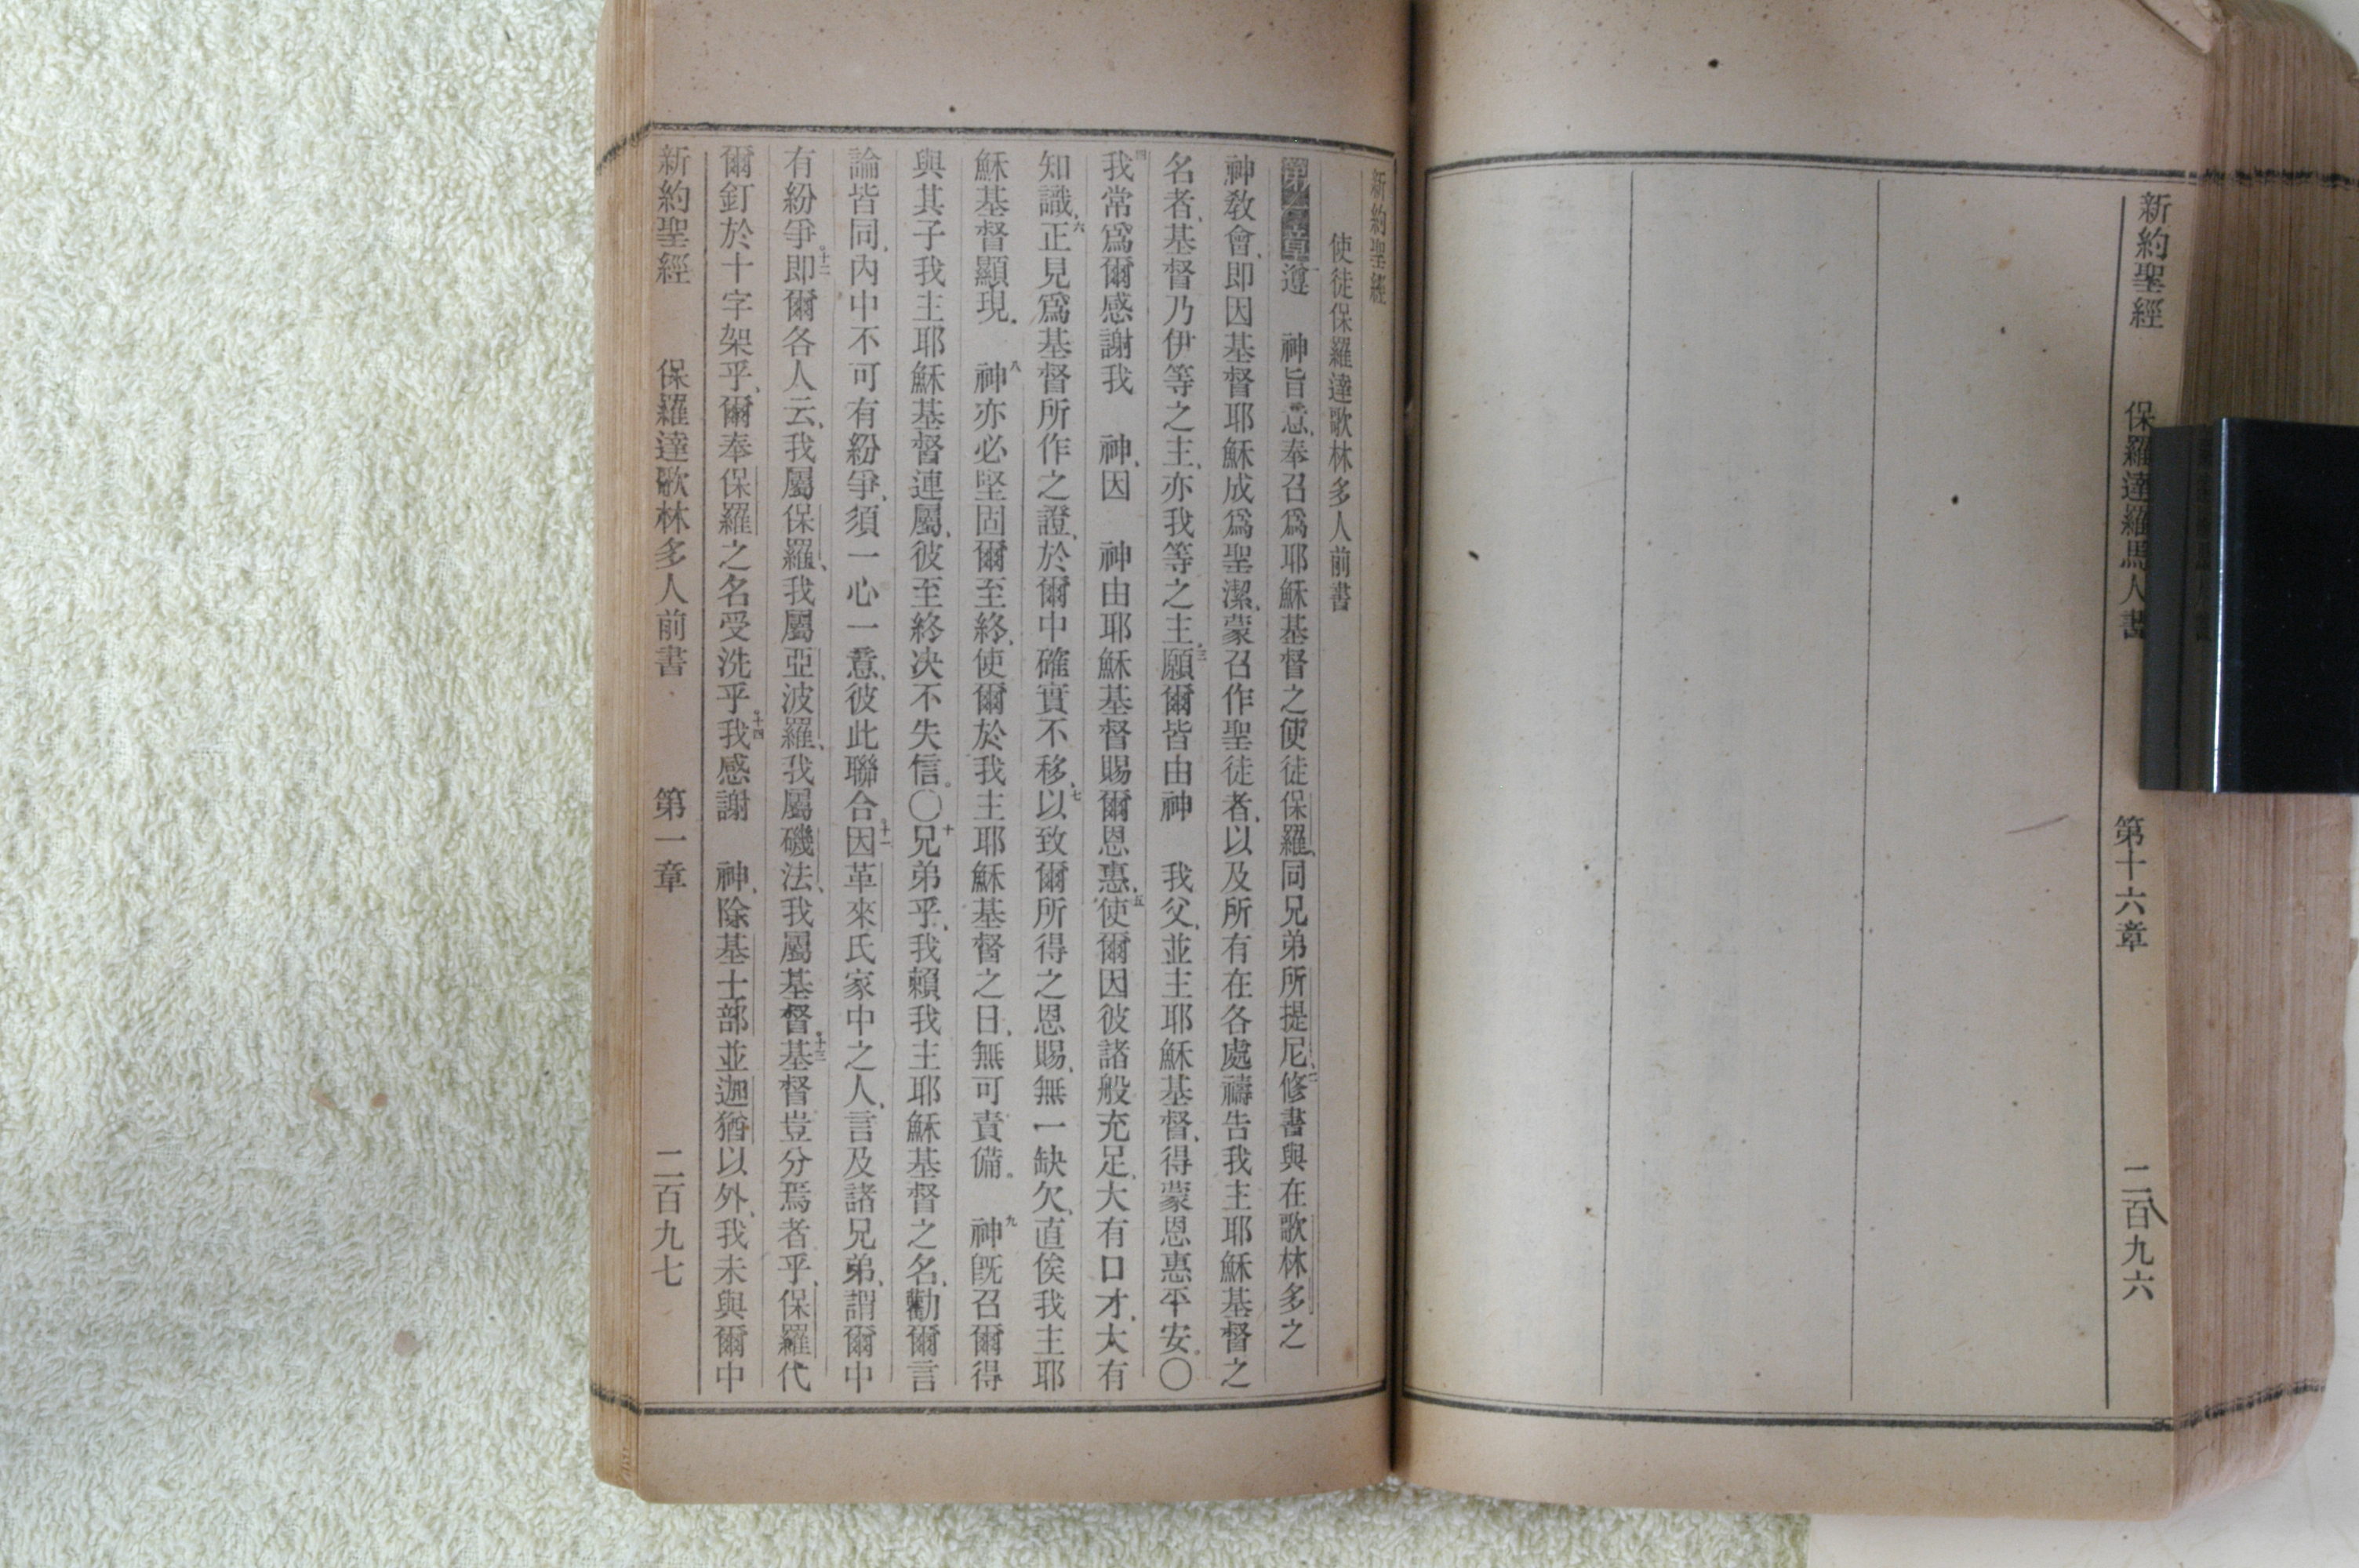 新約聖經　保羅達羅馬人書　第十六章　二百九六
新約聖經
使徒保羅達歌林多人前書
第一章一遵　神旨意、奉召爲耶穌基督之使徒保羅、同兄弟所提尼、二修書與在歌林多之
神教會、即因基督耶穌成爲聖潔、蒙召作聖徒者、以及所有在各處禱告我主耶穌基督之
名者、基督乃伊等之主、亦我等之主、三願爾皆由神　我父、並主耶穌基督、得蒙恩惠平安。〇
四我常爲爾感謝我　神、因　神由耶穌基督賜爾恩惠、五使爾因彼諸般充足、大有口才、大有
知識、六正見爲基督所作之證、於爾中確實不移、七以致爾所得之恩賜、無一缺欠、直俟我主耶
穌基督顯現。八神亦必堅固爾至終、使爾於我主耶穌基督之日、無可責備。九神既召爾得
與其子我主耶穌基督連屬、彼至終决不失信。〇十兄弟乎、我賴我主耶穌基督之名、勸爾言
論皆同、內中不可有紛爭、須一心一意、彼此聯合。十一因革來氏家中之人、言及諸兄弟、謂爾中
有紛爭。十二即爾各人云、我屬保羅、我屬亞波羅、我屬磯法、我屬基督。十三基督豈分焉者乎、保羅代
爾釘於十字架乎、爾奉保羅之名受洗乎。十四我感謝　神、除基士部並迦猶以外、我未與爾中
新約聖經　保羅達歌林多人前書　第一章　二百九七